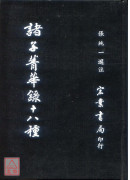 張純一選註
諸子菁華錄十八種
宏業書局印行